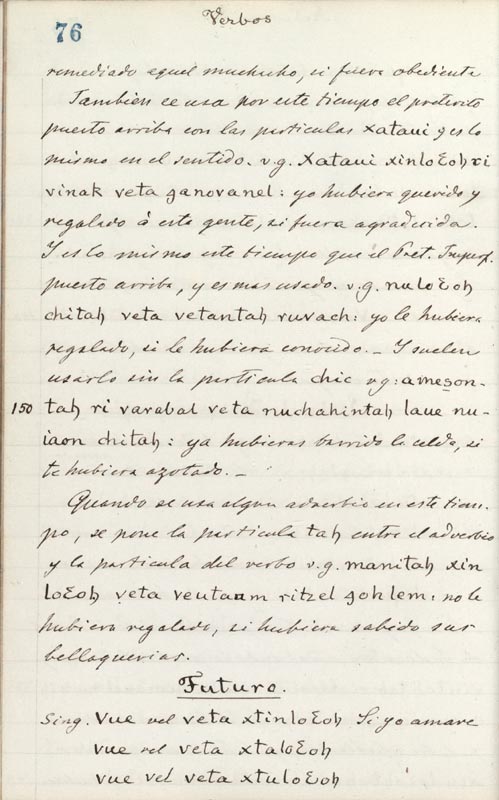 76
Verbos
remediado aquel muchacho, si fuera obediente
Tambien se usa por este tiempo el preterito
puesto arriba con las particulas xataui y es lo
mismo en el sentido. v.g. xataui xinloƐoꜧ ri
vinak veta ganovanel: yo hubiera querido y
regalado á esta gente, si fuera agradecida.
Y es lo mismo este tiempo que el Pret. Imperf.
puesto arriba, y es mas usado. v.g. nuloƐoꜧ
chitaꜧ veta vetantaꜧ ruvach: yo le hubiera
regalado, si le hubiera conocido. _ Y suelen
usarlo sin la particula chic vg: ameson-
150 taꜧ ri varabal veta nuchaꜧintaꜧ laue nu-
iaon chitaꜧ: ya hubieras barrido la celda, si
te hubiera azotado. _
Quando se usa algun adverbio en este tiem-
po, se pone la particula taꜧ entre el adverbio
y la particula del verbo v.g. manitaꜧ xin
loƐoꜧ veta veutaam ritzel goꜧlem: no le
hubiera regalado, si hubiera sabido sus
bellaquerias.
Futuro.
Sing. vue vel veta xtinloƐoꜧ Si yo amare
vue vel veta xtaloƐoꜧ
vue vel veta xtuloƐoꜧ